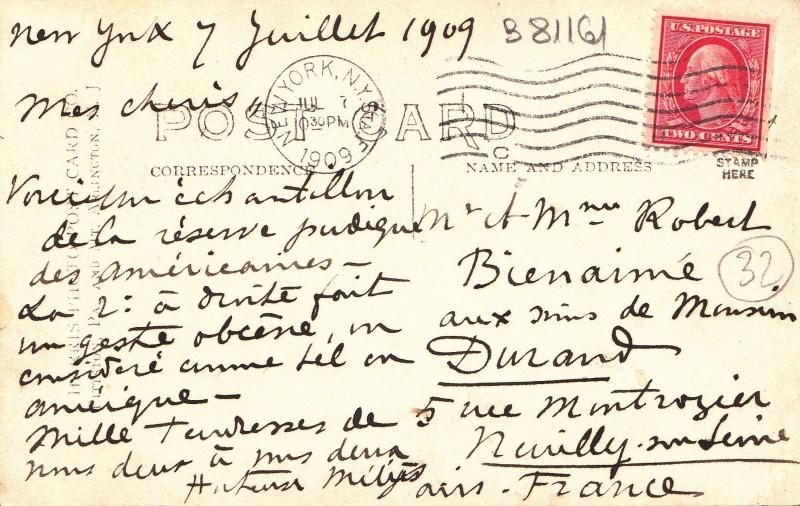 New York 7 Juillet 1909
B81161
U.S. POSTAGE
TWO CENTS
STAMP
HERE
NEW YORK, N.Y. STA.
JUL 7
1030PM
1909
C
POST CARD
CORRESPONDENCE
NAME AND ADDRESS
Mes cheris,
Voici un échantillon
de la réserve pudique
des américaines -
La 2: à droite fait
un geste obcène, ou
considéré comme tel en
amérique -
Mille tendresses de
nous deux à vous deux
Mr et Mme Robert
Bienaimé
32
aux soins de Monsieur
Durand
5 rue Montrozier
Neuilly-sur-Seine
France
PHOTO POST CARD CO.
ARLINGTON, N. J.